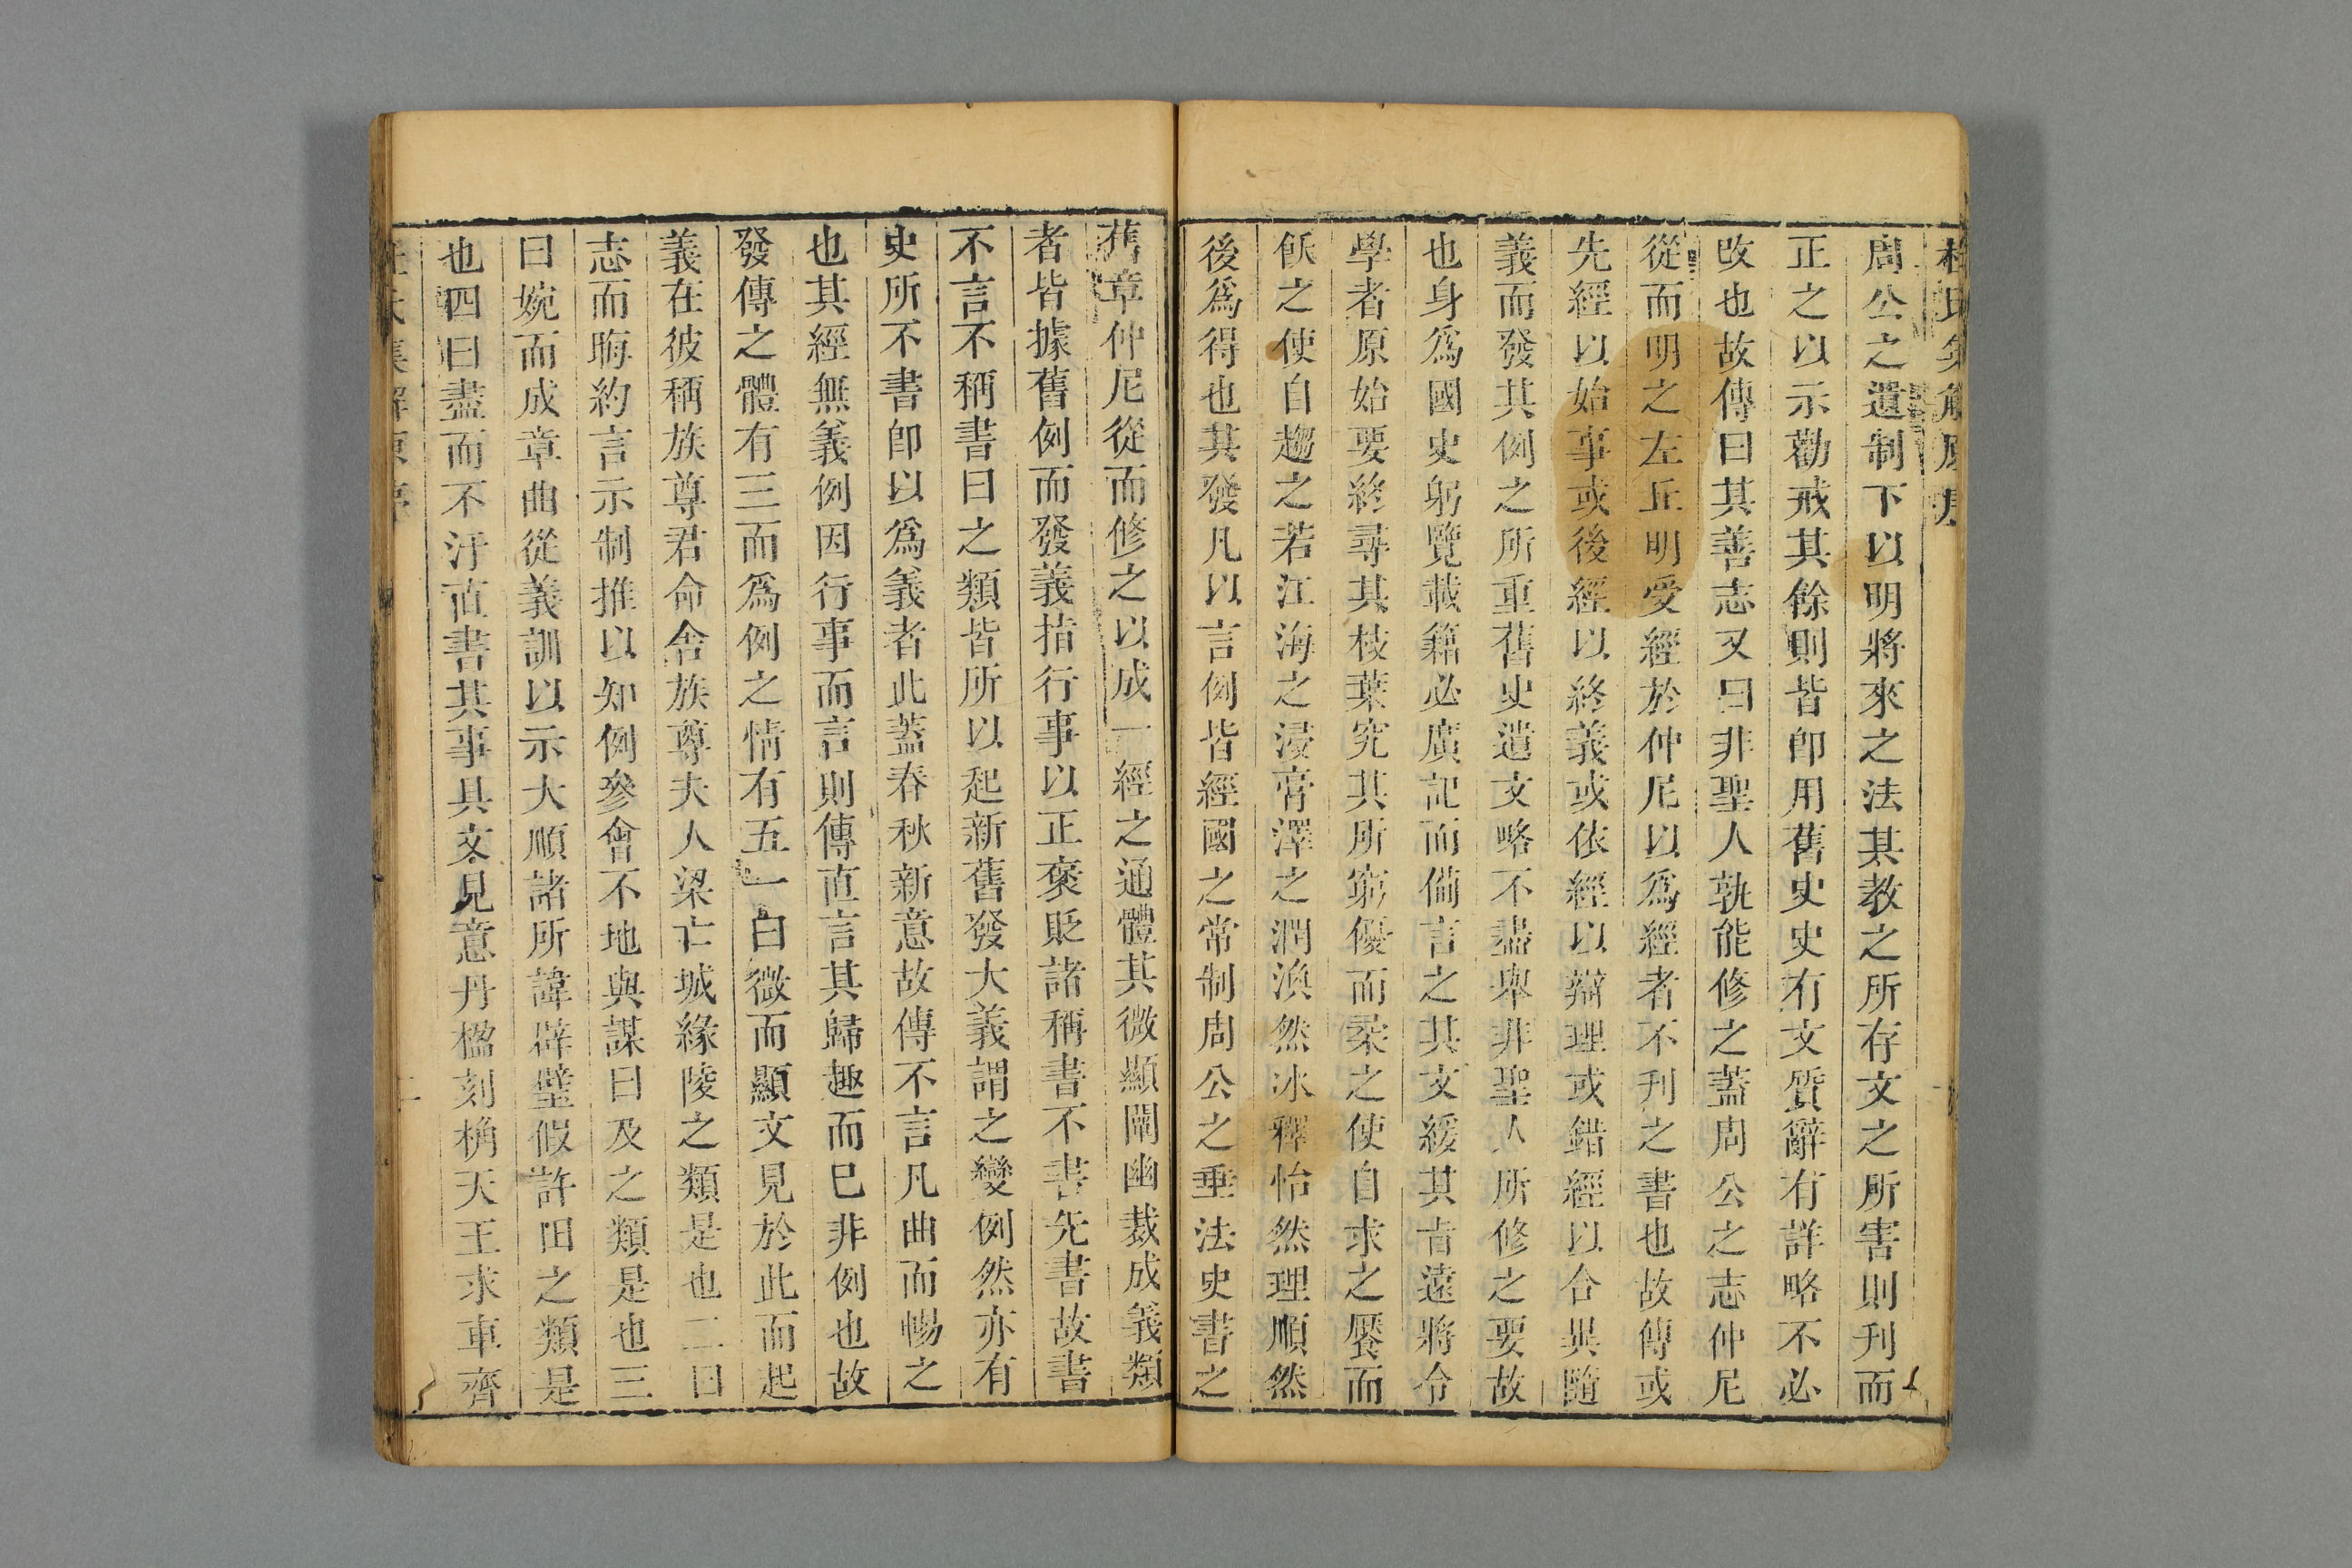 杜氏集解原序
周公之遺制下以明將來之法其教之所存文之所害則刊而
正之以示勸戒其餘則皆即用舊史史有文質辭有詳略不必
改也故傳曰其善志又曰非聖人孰能修之蓋周公之志仲尼
從而明之左丘明受經於仲尼以爲經者不刊之書也故傳或
先經以始事或後經以終義或依經以辯理或錯經以合異隨
義而發其例之所重舊史遺文略不盡舉非聖人所修之要故
也身爲國史躬覽載籍必廣記而備言之其文緩其旨遠將令
學者原始要終尋其枝葉究其所窮優而柔之使自求之饜而
飫之使自趨之若江海之浸膏澤之潤渙然冰釋怡然理順然
後爲得也其發凡以言例皆經國之常制周公之垂法史書之
舊章仲尼從而修之以成一經之通體其微顯闡幽裁成義類
者皆據舊例而發義指行事以正褒貶諸稱書不書先書故書
不言不稱書曰之類皆所以起新舊發大義謂之變例然亦有
史所不書即以爲義者此蓋春秋新意故傳不言凡曲而暢之
也其經無義例因行事而言則傳直言其歸趣而已非例也故
發傳之體有三而爲例之情有五一曰微而顯文見於此而起
義在彼稱族尊君命舍族尊夫人梁亡城緣陵之類是也二曰
志而晦約言示制推以知例參會不地與謀曰及之類是也三
曰婉而成章曲從義訓以示大順諸所諱辟璧假許田之類是
也四曰盡而不汙直書其事具文見意丹楹刻桷天王求車齊
杜氏集解原序
二